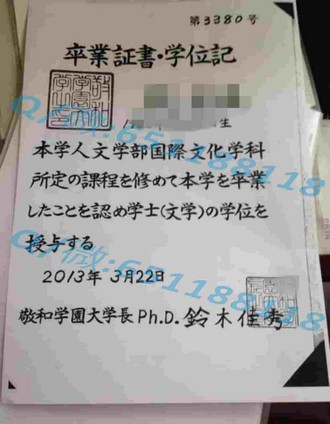 第3380号
卒業証書・学位記
生
本学人文学部国際文化学科
所定の課程を修めて本学を卒業
したことを認め学士(文学)の学位を
授与する
2013年 3月22日
敬和学園大学長Ph.D.鈴木佳秀